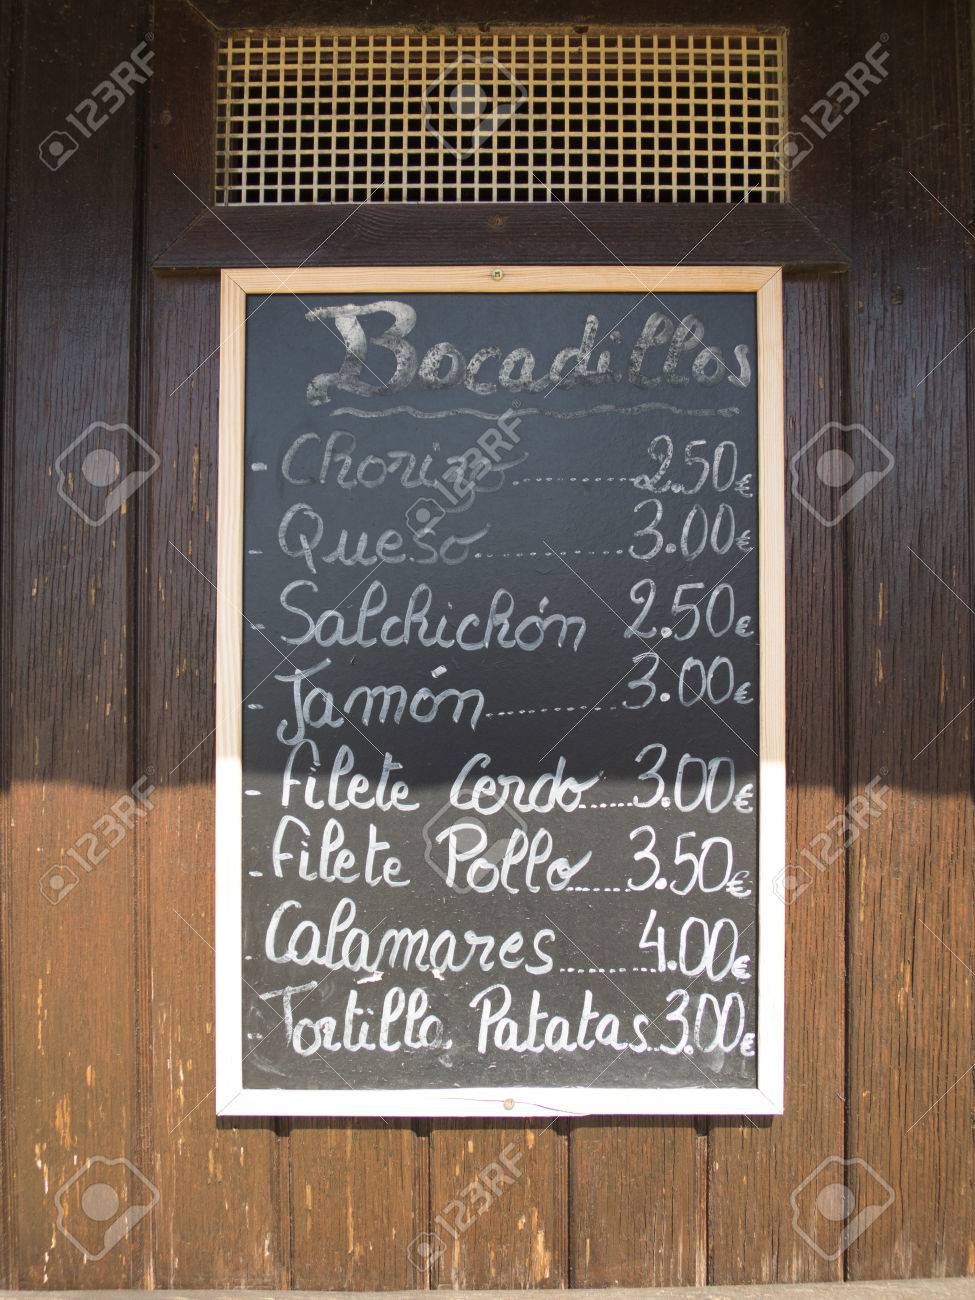 Bocadillos
- Chorizo.......... 2.50€
- Queso.......... 3.00€
- Salchichón 2.50€
- Jamón.......... 3.00€
- Filete Cerdo..... 3.00€
- Filete Pollo..... 3.50€
- Calamares....... 4.00€
- Tortilla Patatas.. 3.00€
123RF